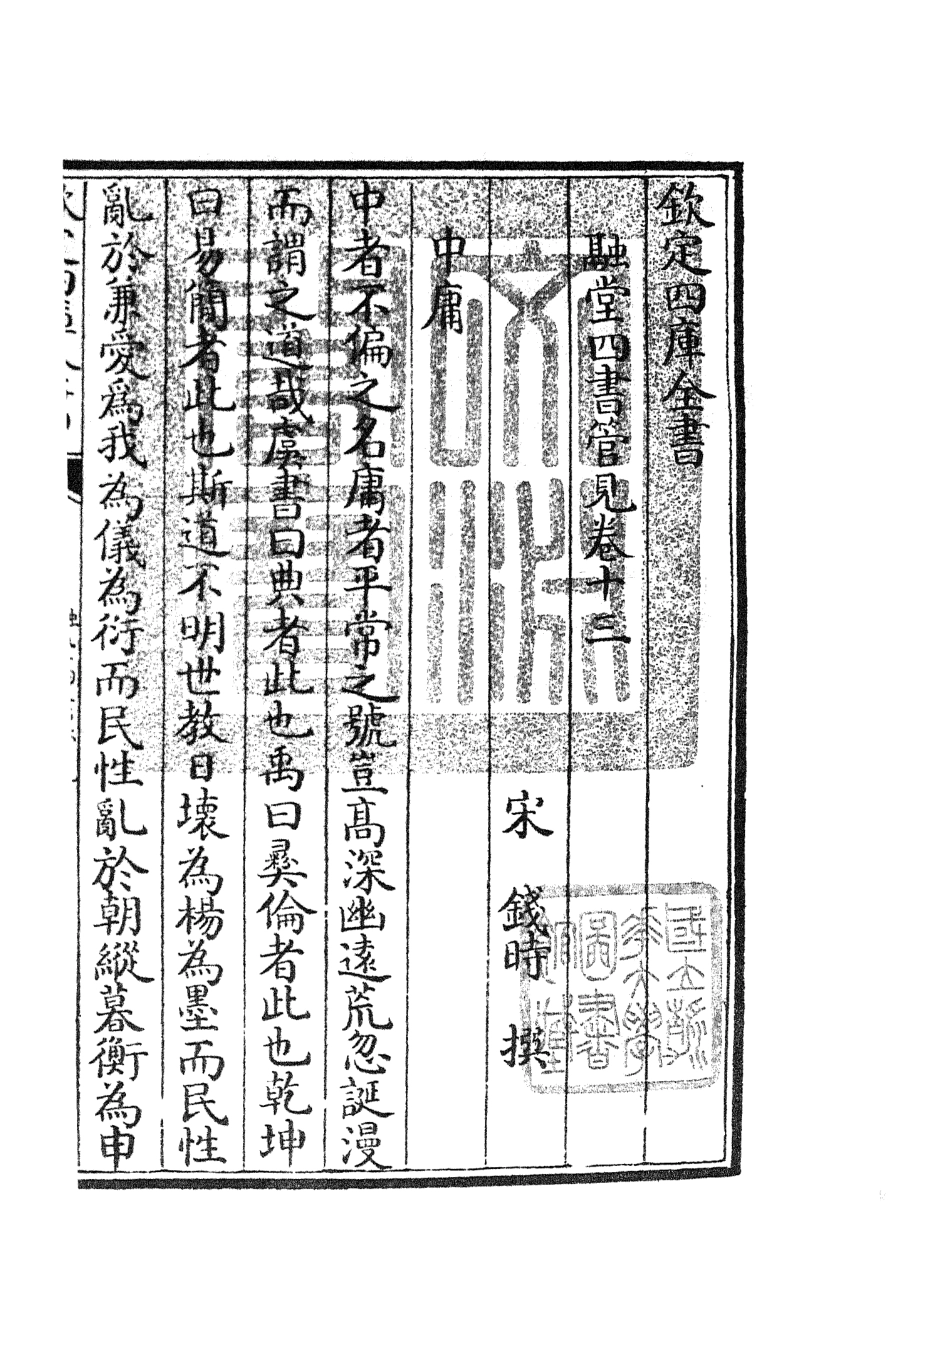 欽定四庫全書
融堂四書管見卷十三
宋 錢時 撰
中庸
中者不偏之名庸者平常之號豈髙深幽逺荒忽誕漫
而謂之道哉虞書曰典者此也禹曰彛倫者此也乾坤
曰易簡者此也斯道不明世教日壊為楊為墨而民性
亂於兼愛爲我為儀為衍而民性亂於朝縱暮衡為申